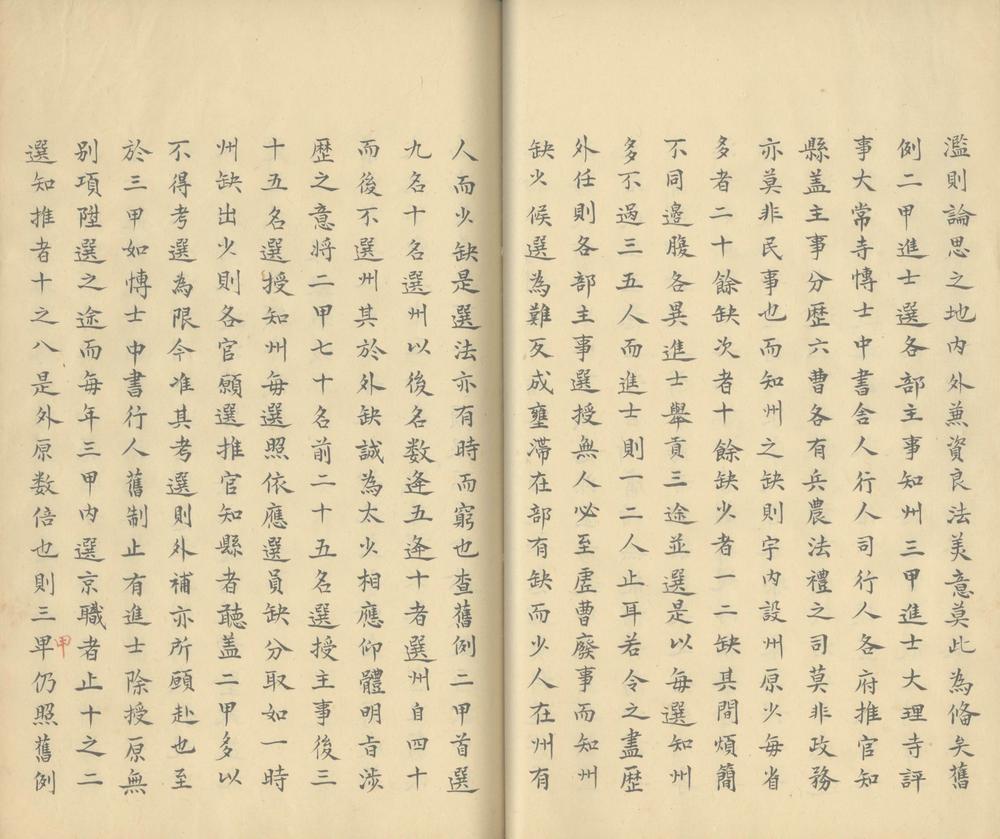 濫則論思之地內外兼資良法美意莫此為俻矣舊
例二甲進士選各部主事知州三甲進士大理寺評
事大常寺慱士中書舍人行人司行人各府推官知
縣盖主事分歷六曹各有兵農法禮之司莫非政務
亦莫非民事也而知州之缺則宇內設州原少每省
多者二十餘缺次者十餘缺少者一二缺其間煩簡
不同邊腹各異進士舉貢三途並選是以每選知州
多不過三五人而進士則一二人止耳若令之盡歷
外任則各部主事選授無人必至虛曹廢事而知州
缺少候選為難反成壅滯在部有缺而少人在州有
人而少缺是選法亦有時而窮也查舊例二甲首選
九名十名選州以後名數逢五逢十者選州自四十
而後不選州其於外缺誠為太少相應仰體明旨涉
歷之意將二甲七十名前二十五名選授主事後三
十五名選授知州每選照依應選員缺分取如一時
州缺出少則各官願選推官知縣者聽盖二甲多以
不得考選為限今准其考選則外補亦所願赴也至
於三甲如慱士中書行人舊制止有進士除授原無
別項陞選之途而每年三甲內選京職者止十之二
選知推者十之八是外原数倍也則三甲仍照舊例